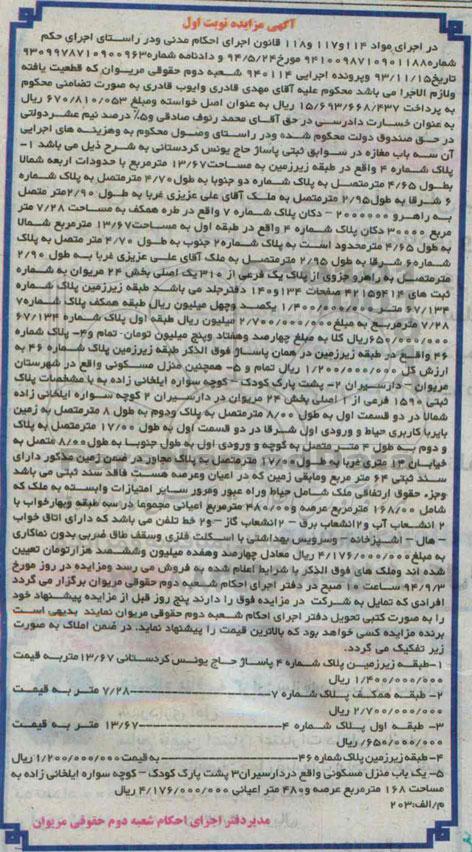 آگهی مزایده نوبت اول
در اجرای مواد ۱۱۴و۱۱۷و ۱۱۸ قانون اجرای احکام مدنی ودر راستای اجرای حکم
شماره۹۴۱۰۰۹۸۷۱۰۹۰۱۱۸۸ مورخ ۹۴/۵/۲۴ و دادنامه شماره۹۳۰۹۹۷۸۷۱۰۹۰۰۹۶۳
تاریخ۹۳/۱۱/۱۵ وپرونده اجرایی ۹۴۰۱۱۴ شعبه دوم حقوقی مریوان که قطعیت یافته
ولازم الاجرا می باشد محکوم علیه آقای مهدی قادری وایوب قادری به صورت تضامنی محکوم
به پرداخت ۱۵/۶۹۳/۶۶۸/۴۳۷ ریال به عنوان اصل خواسته ومبلغ ۶۷۰/۸۱۰/۰۵۳ ریال
به عنوان خسارت دادرسی در حق آقای محمد رئوف صادقی و۵٪ درصد نیم عشردولتی
در حق صندوق دولت محکوم شده ودر راستای وصول محکوم به وهزینه های اجرایی
آن سه باب مغازه در سوابق ثبتی پاساژ حاج یونس کردستانی به شرح ذیل می باشد ۱-
پلاک شماره ۴ واقع در طبقه زیرزمین به مساحت۱۳/۶۷ مترمربع با حدودات اربعه شمالا
بطول ۴/۶۵ مترمتصل به پلاک شماره دو جنوبا به طول۴/۷۰ مترمتصل به پلاک
۶ شرقا به طول۲/۹۵ مترمتصل به ملک آقای علی عزیزی غربا به طول ۲/۹۰متر متصل
به راهرو ۲۰۰۰۰۰۰ - دکان پلاک شماره ۷ واقع در طره همکف به مساحت ۷/۲۸ متر
مربع ۳۰۰۰۰ دکان پلاک شماره ۴ واقع در طبقه اول به مساحت۱۳/۶۷ مترمربع شمالا
به طول ۴/۶۵ مترمحدود است به پلاک شماره۲ جنوب به طول ۴/۷۰ متر متصل به پلاک
شماره۶ شرقا به طول ۲/۹۵ متر متصل به ملک آقای علی عزیزی غربا به طول ۲/۹۰
مترمتصل به راهرو جزوی از پلاک یک فرعی از ۳۱۰ یک اصلی بخش ۲۴ مریوان به شماره
ثبت های ۴۱۴و۴۱۵ صفحات ۱۳۴و۱۴۰ دفترجلد می باشد طبقه زیرزمین پلاک شماره
۶۷/۱۳۴ متر ۱/۴۰۰/۰۰۰/۰۰۰ یکصد وچهل میلیون ریال طبقه همکف پلاک شماره۷
۷/۲۸ مترمربع به مبلغ۲/۷۰۰/۰۰۰/۰۰۰ میلیون ریال طبقه اول پلاک شماره ۶۷/۱۳۴
۶۵۰/۰۰۰/۰۰۰ریال کلا به مبلغ چهارصد وهفتاد وپنج میلیون تومان- تمام و۴- پلاک شماره
۴۶ واقع در طبقه زیرزمین در همان پاساژ فوق الذکر طبقه زیرزمین پلاک شماره ۴۶ به
ارزش کل ۱/۲۰۰/۰۰۰/۰۰۰ ریال تمام و ۵- همچنین منزل مسکونی واقع در شهرستان
مریوان - دارسیران ۲- پشت پارک کودک - کوچه سواره ایلخانی زاده به با مشخصات پلاک
ثبتی ۱۵۹۰ فرعی از ۱ اصلی بخش ۲۴ مریوان در دارسیران ۲ کوچه سواره ایلخانی زاده
شمالا در دو قسمت اول به طول ۸/۰۰ مترمتصل به پلاک ودوم به طول ۸ مترمتصل به زمین
بایربا کاربری حیاط و ورودی اول شرقا در دو قسمت اول به طول ۱۷/۰۰ مترمتصل به پلاک
و دوم به طول ۴ متر متصل به کوچه و ورودی اول به طول جنوبا به طول ۸/۰۰ متصل به
خیابان ۱۴ متری غربا به طول ۱۷/۰۰ مترمتصل به پلاک مجاور در ضمن زمین مذکور دارای
سند ثبتی ۶۴ متر مربع ومابقی زمین که در اعیان وعرصه هست فاقد سند ثبتی می باشد
وجزء حقوق ارتفاقی ملک شامل حیاط وراه عبور ومرور سایر امتیازات وابسته به ملک که
شامل ۱۶۸/۰۰ مترمربع عرصه و۴۸۰/۰۰ مترمربع اعیانی مجموعا در سه طبقه وبهارخواب با
۲ انشعاب آب و۲انشعاب برق - ۲انشعاب گاز -و۲ خط تلفن می باشد که دارای اتاق خواب
- هال - آشپزخانه - وسرویس بهداشتی با اسکلت فلزی وسقف طاق ضربی بدون نماکاری
به مبلغ۴/۱۷۶/۰۰۰/۰۰۰ ریال معادل چهارصد وهفده میلیون وششصد هزارتومان تعیین
شده اند وملک های فوق الذکر با شرایط اعلام شده به فروش می رسد ومزایده در روز مورخ
۹۴/۹/۳ ساعت ۱۰ صبح در دفتر اجرای احکام شعبه دوم حقوقی مریوان برگزار می گردد
افرادی که تمایل به شرکت در مزایده فوق را دارند پنج روز قبل از مزایده پیشنهاد خود
را به صورت کتبی تحویل دفتر اجرای احکام شعبه دوم حقوقی مریوان نمایند بدیهی است
برنده مزایده کسی خواهد بود که بالاترین قیمت را پیشنهاد نماید. در ضمن املاک به صورت
زیر تفکیک می گردد.
۱-طبقه زیرزمین پلاک شماره ۴ پاساژ حاج یونس کردستانی ۱۳/۶۷ متربه قیمت
۱/۴۰۰/۰۰۰/۰۰۰ ریال
۲- طبقه همکف پلاک شماره ۷--------------------۷/۲۸ متر به قیمت
۲/۷۰۰/۰۰۰/۰۰۰ ریال
۳- طبقه اول پلاک شماره ۴--------------------۱۳/۶۷ متر به قیمت
۶۵۰/۰۰۰/۰۰۰ ریال
۴-طبقه زیرزمین پلاک شماره ۴۶--------------------به قیمت ۱/۲۰۰/۰۰۰/۰۰۰ ریال
۵- یک باب منزل مسکونی واقع دردارسیران۳ پشت پارک کودک - کوچه سواره ایلخانی زاده به
مساحت ۱۶۸ مترمربع عرصه و۴۸۰ متر اعیانی ۴/۱۷۶/۰۰۰/۰۰۰ ریال
م/الف:۲۰۳
مدیردفتر اجرای احکام شعبه دوم حقوقی مریوان